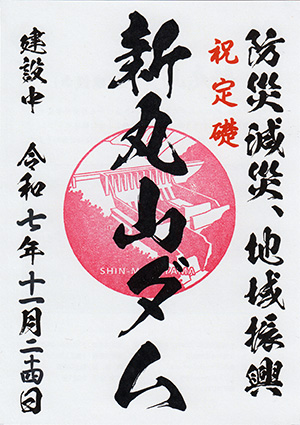 防災減災、地域振興
祝定礎
新丸山ダム
SHIN-MARUYAMA
建設中 令和七年十一月二十四日